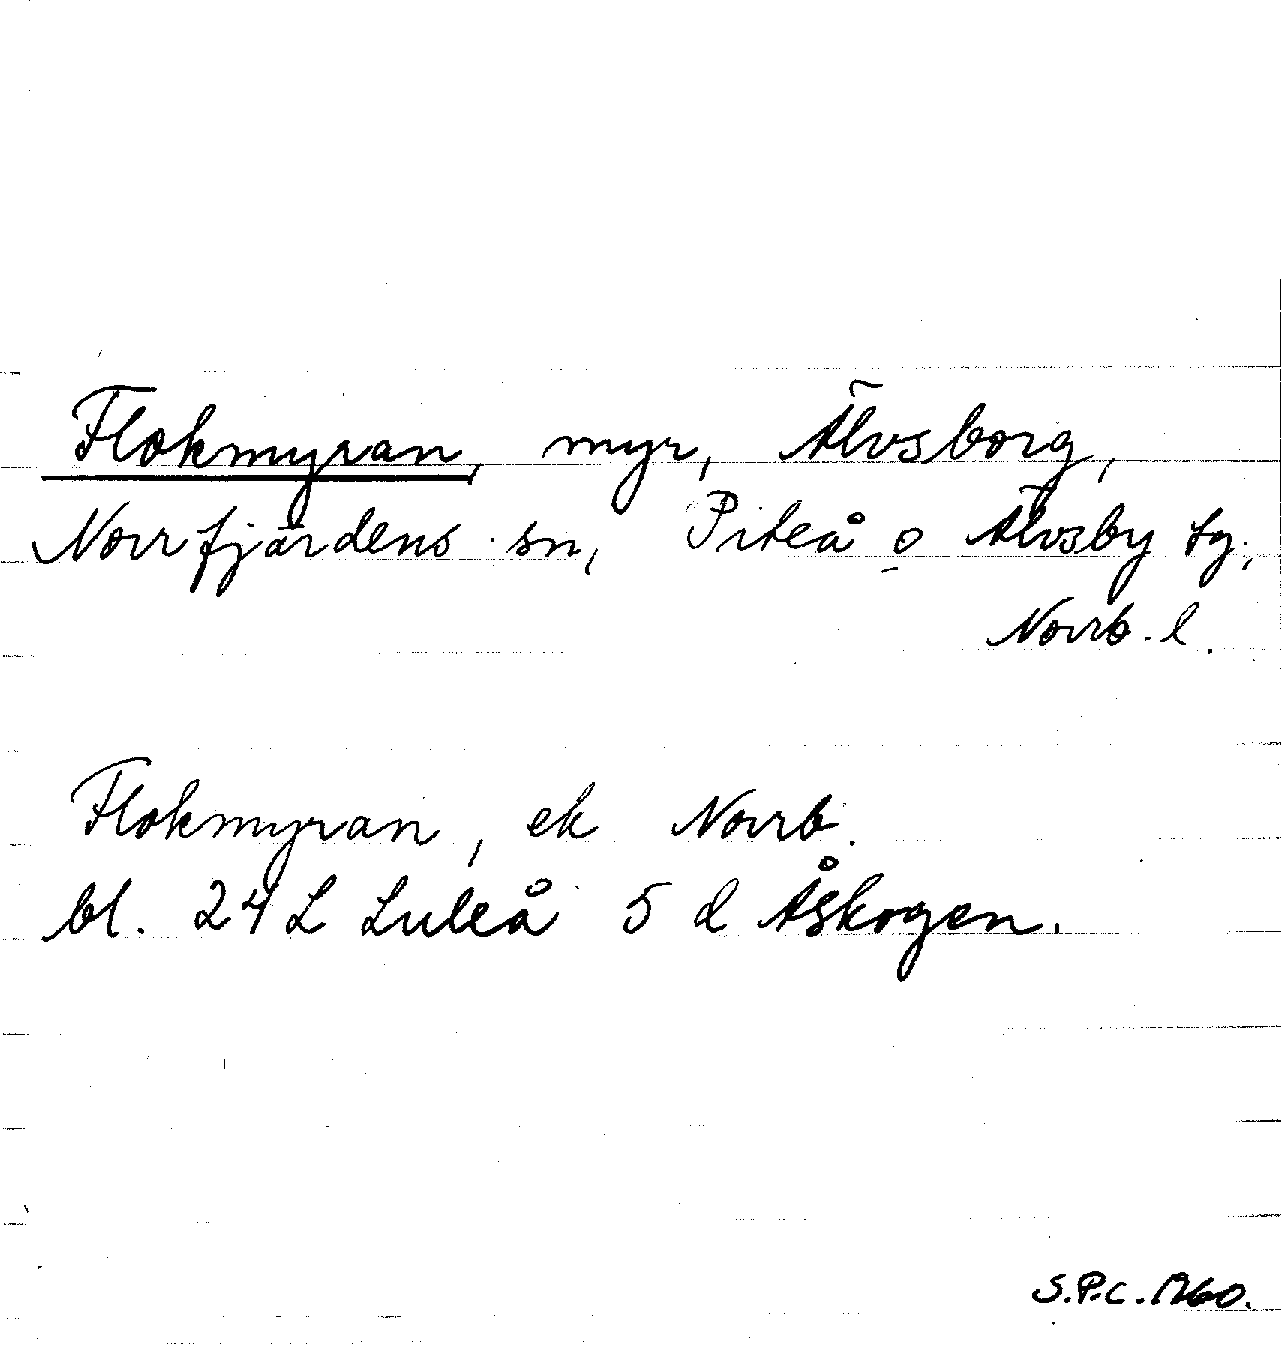 Flokmyran, myr, Älvsborg,
Norrfjärdens sn, Piteå o Älvsby tg,
Norrb. l.
Flokmyran, ek Norrb.
bl. 24 L Luleå 5 d Åskogen.
S.P.C. 1960.